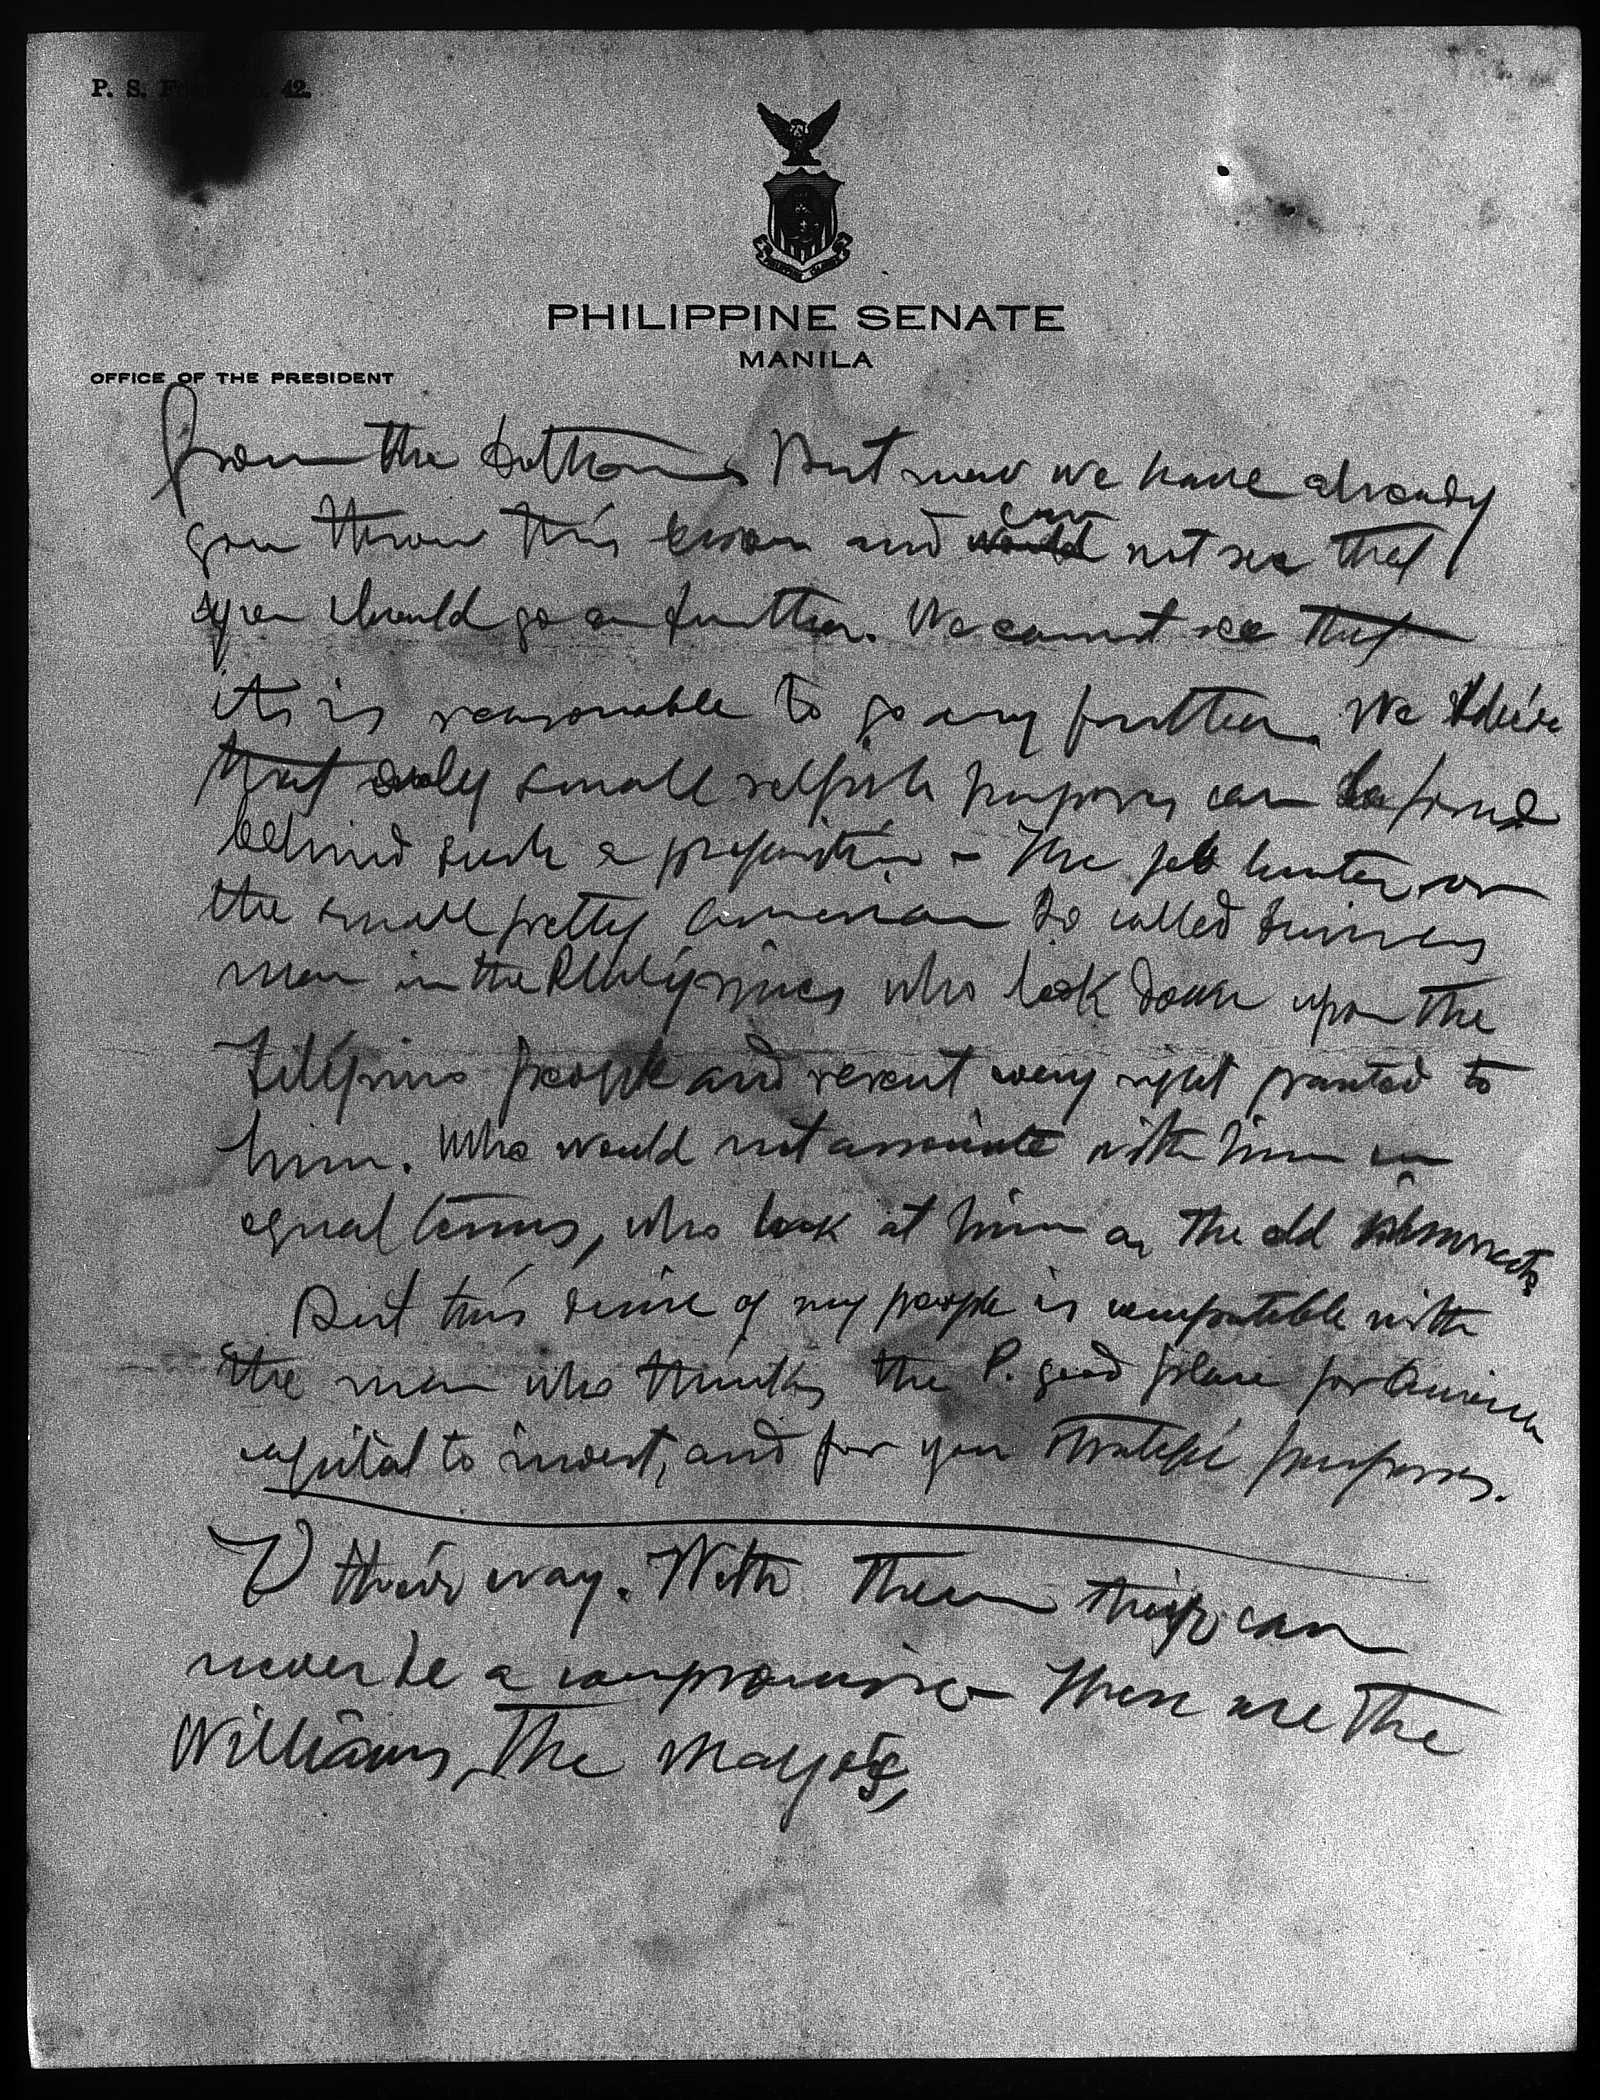 P. S. F 42.
PHILIPPINE SENATE
MANILA
OFFICE OF THE PRESIDENT
from the bottom. But now we have already
gon throu this and can not see that
you should go on further. We cannot see that
its is reasonable to go any further. We
that only small selfish purposes can be found
behind such a proposition - The job hunter or
the small pretty American so called business
man in the Philippines who look down upon the
Filipino people and resent every right granted to
him. Who would not associate with him in
equal terms, who look at him as the old
But this desire of my people is compatible with
the man who thinks the P. good place for America
capital to invest, and for you strategic purposes.
V their way. With them there can
never be a compromise - These are the
Williams, the